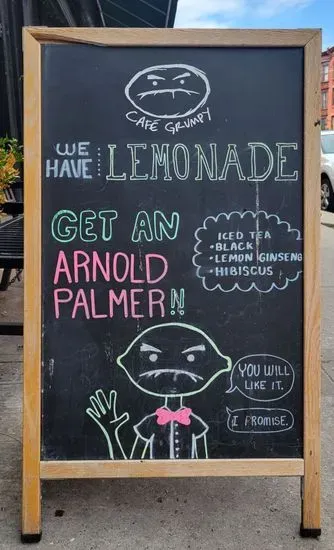 CAFÉ GRUMPY
WE
HAVE: LEMONADE
GET AN
ARNOLD
PALMER!!
ICED TEA
• BLACK
• LEMON GINSENG
• HIBISCUS
YOU WILL
LIKE IT.
I PROMISE.